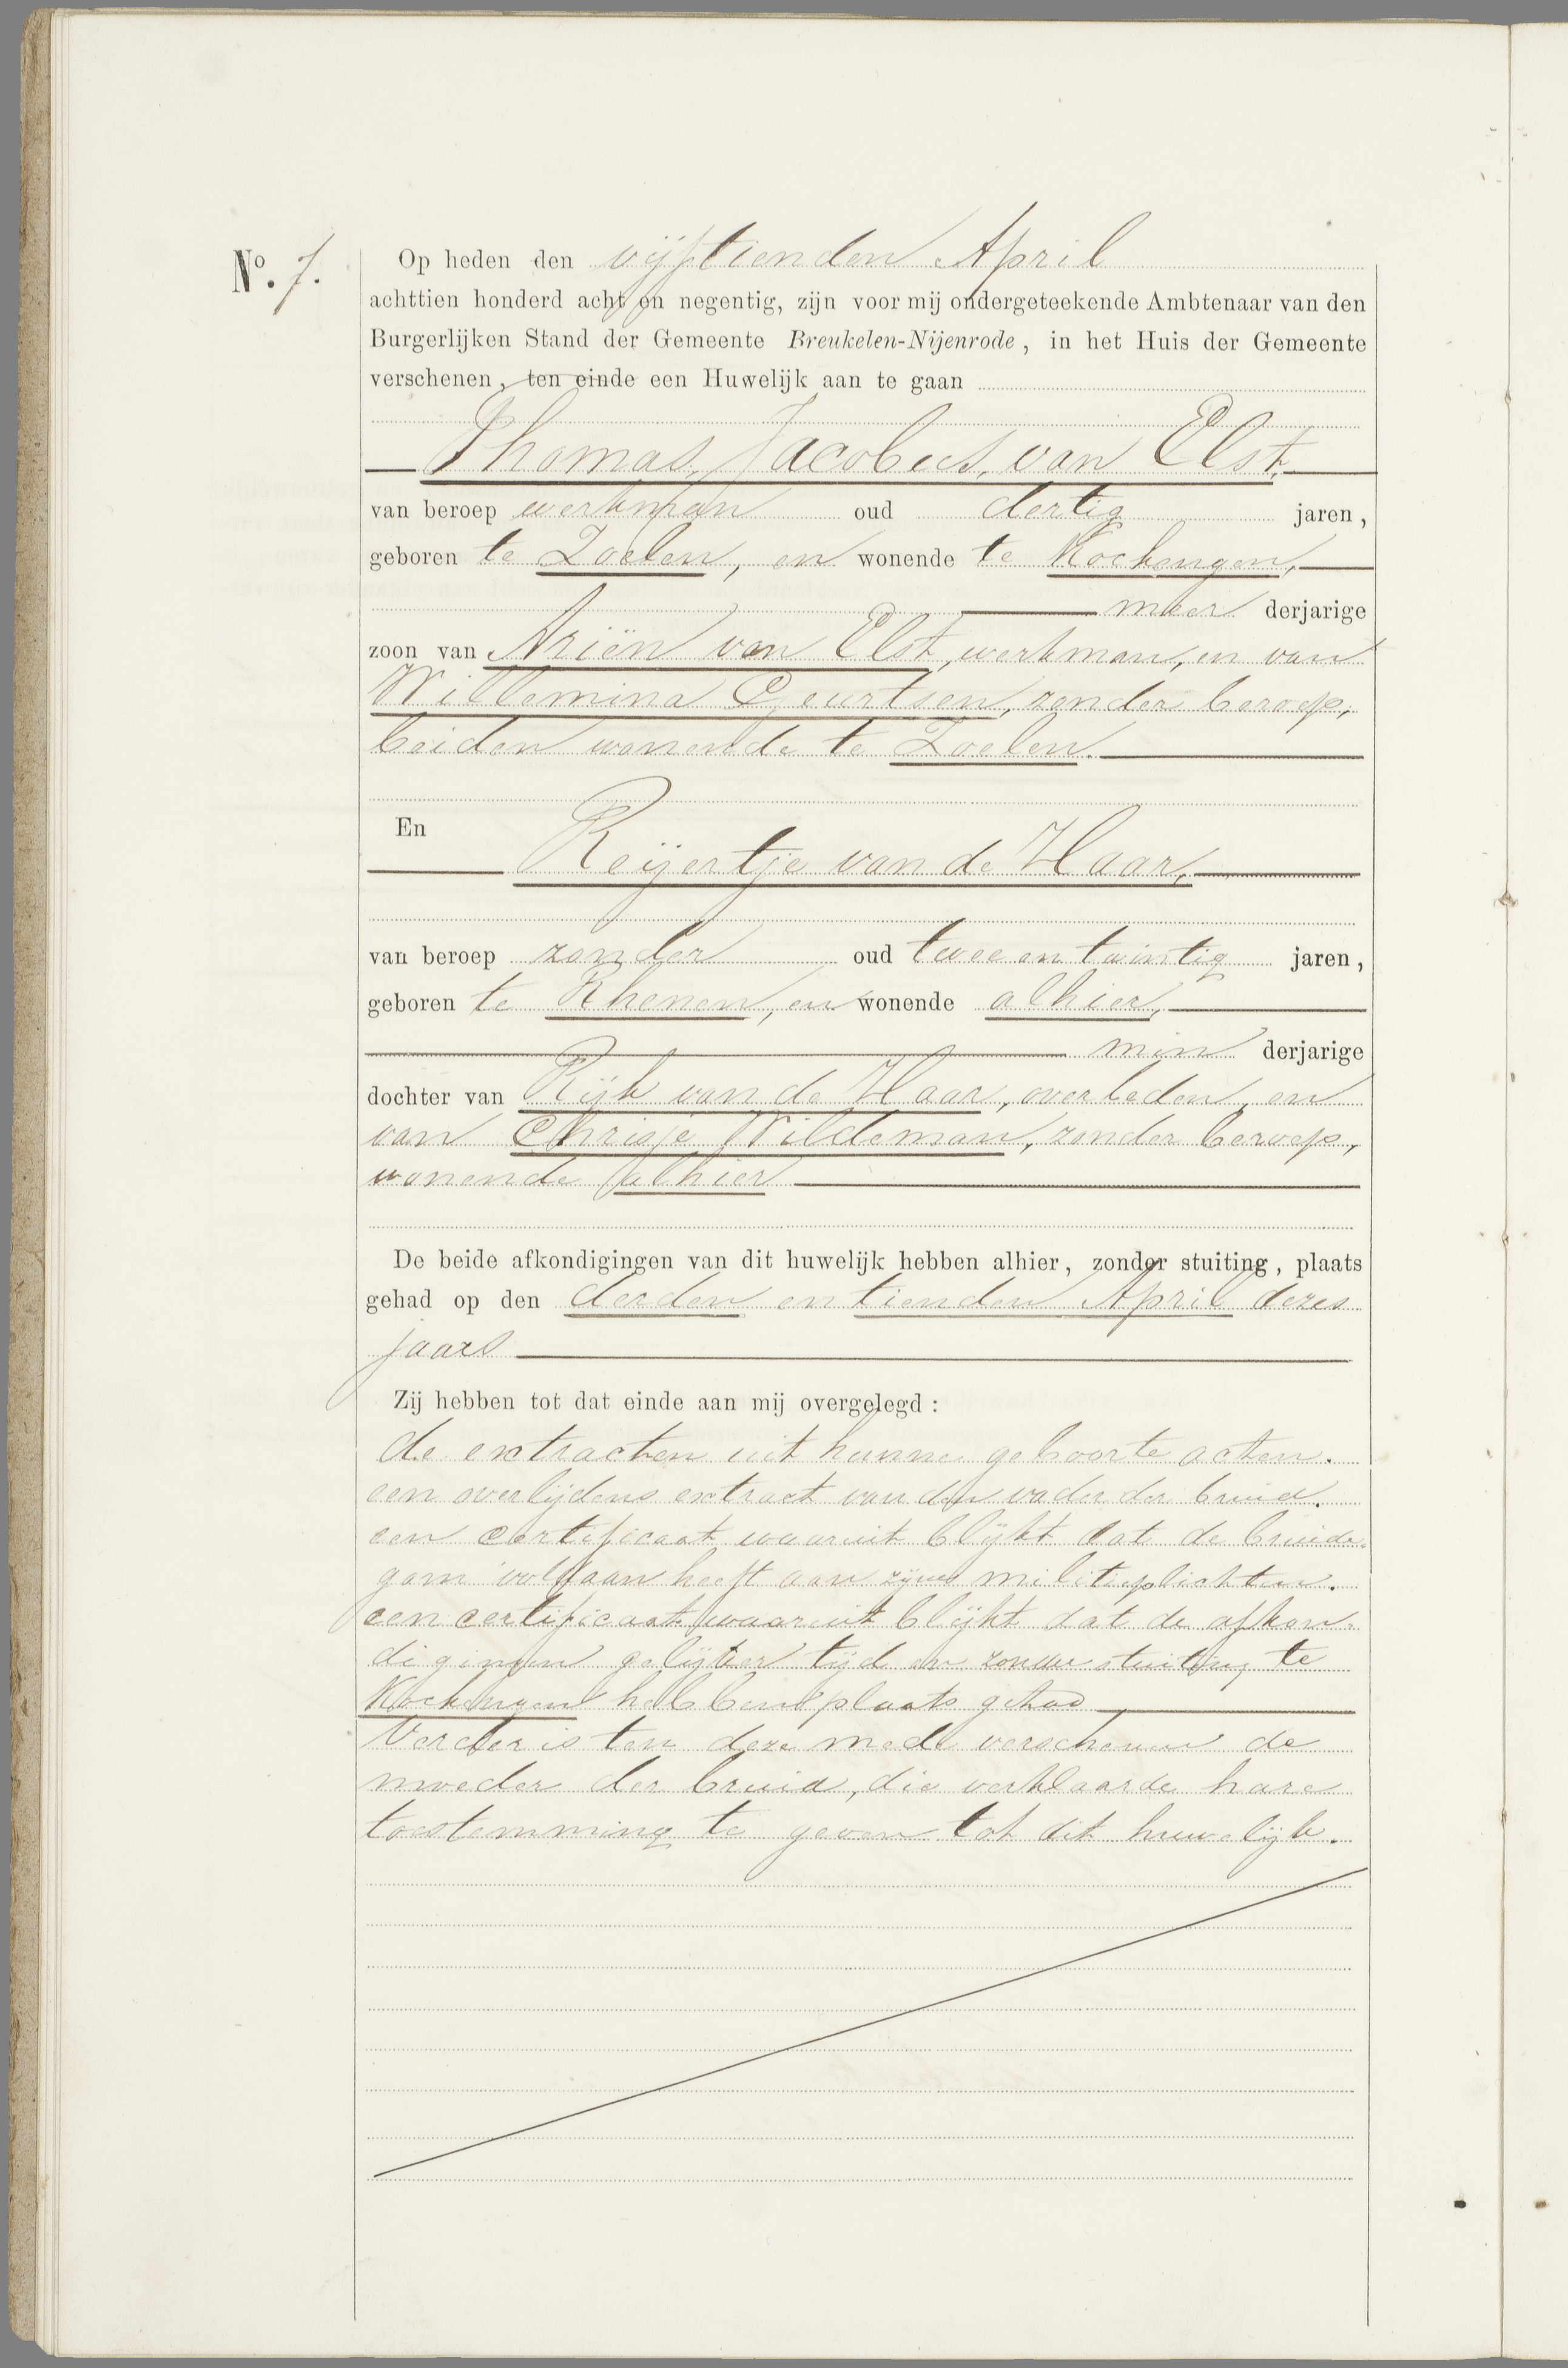 Nº. 7.
Op heden den vijftienden April
achttien honderd acht en negentig, zijn voor mij ondergeteekende Ambtenaar van den
Burgerlijken Stand der Gemeente Breukelen-Nijenrode, in het Huis der Gemeente
verschenen, ten einde een Huwelijk aan te gaan
Thomas, Jacobus, van Elst,
van beroep werkman oud dertig jaren,
geboren te Zoelen, en wonende te Kockengen,
meer derjarige
zoon van Ariën van Elst, werkman, en van
Willemina Geurtsen, zonder beroep,
beiden wonende te Zoelen.
En
Reijertje van de Haar,
van beroep zonder oud twee en twintig jaren,
geboren te Rhenen, en wonende alhier,
min derjarige
dochter van Rijk van de Haar, overleden, en
van Chrisje Wildeman, zonder beroep,
wonende alhier
De beide afkondigingen van dit huwelijk hebben alhier, zonder stuiting, plaats
gehad op den derden en tienden April dezes
jaars
Zij hebben tot dat einde aan mij overgelegd:
de extracten uit hunne geboorte acten.
een overlijdens extract van den vader der bruid.
een certificaat waaruit blijkt dat de bruide-
gom voldaan heeft aan zijne militieplichten.
een certificaat waaruit blijkt dat de afkon-
digingen gelijker tijd en zonder stuiting te
Kockengen hebben plaats gehad
Verder is ten deze mede verschenen de
moeder der bruid, die verklaarde hare
toestemming te geven tot dit huwelijk.